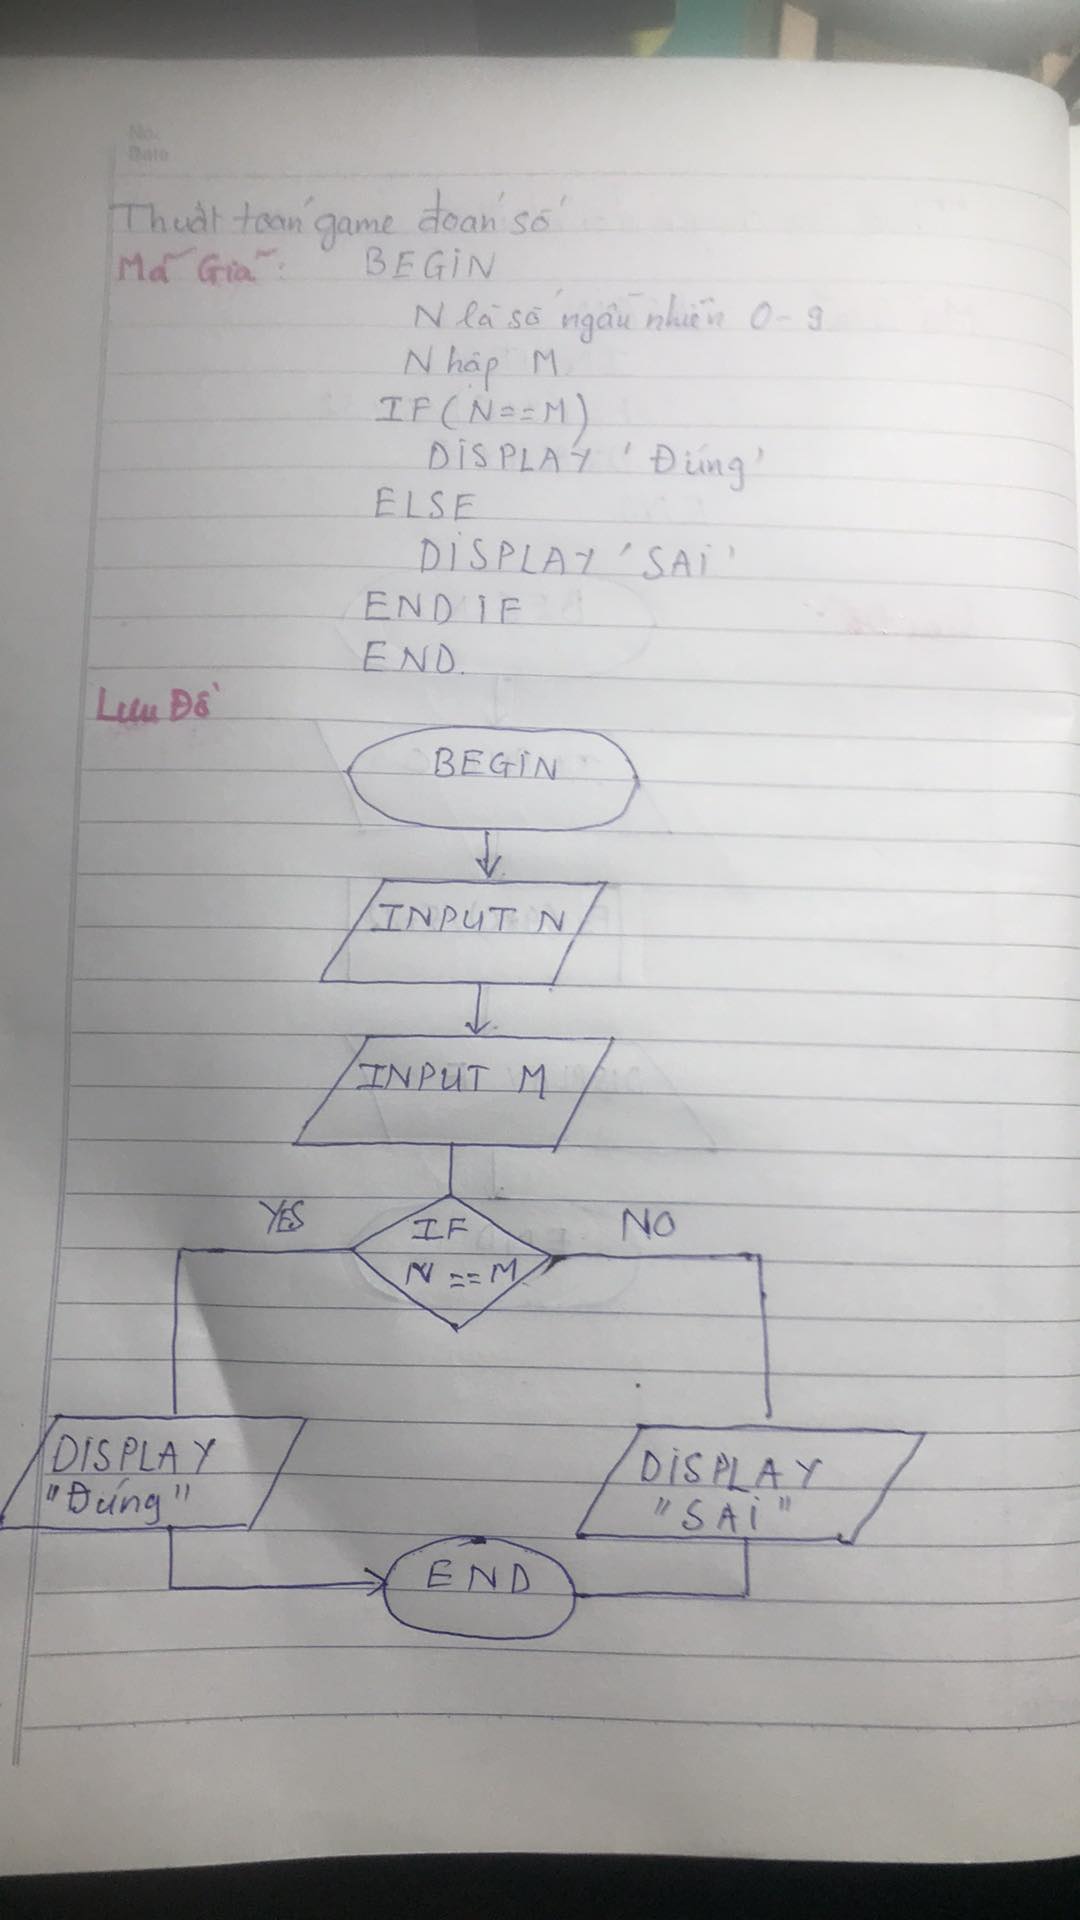 No.
Date
Thuật toán game đoán số
Mã Giả: BEGIN
N là số ngẫu nhiên 0-9
Nhập M
IF(N==M)
DISPLAY 'Đúng'
ELSE
DISPLAY 'SAI'
END IF
END.
Lưu Đồ
BEGIN
INPUT N
INPUT M
YES IF NO
N==M
DISPLAY DISPLAY
"Đúng" "SAI"
END